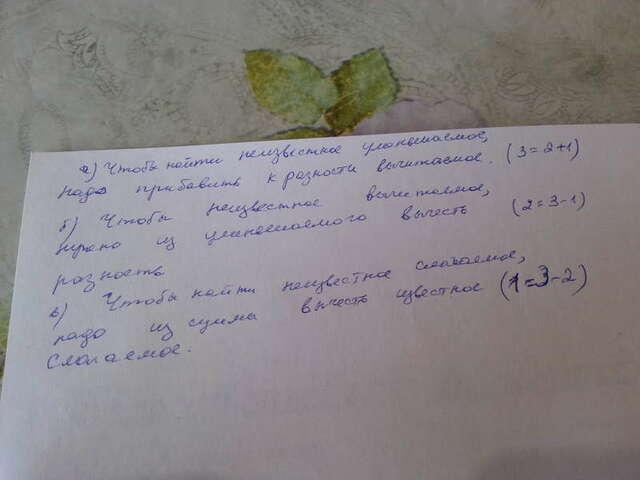 а) Чтобы найти неизвестное уменьшаемое,
надо прибавить к разности вычитаемое. (3=2+1)
б) Чтобы неизвестное вычитаемое,
нужно из уменьшаемого вычесть (2=3-1)
разность
в) Чтобы найти неизвестное слагаемое,
надо из сумма вычесть известное (1=3-2)
Слагаемое.